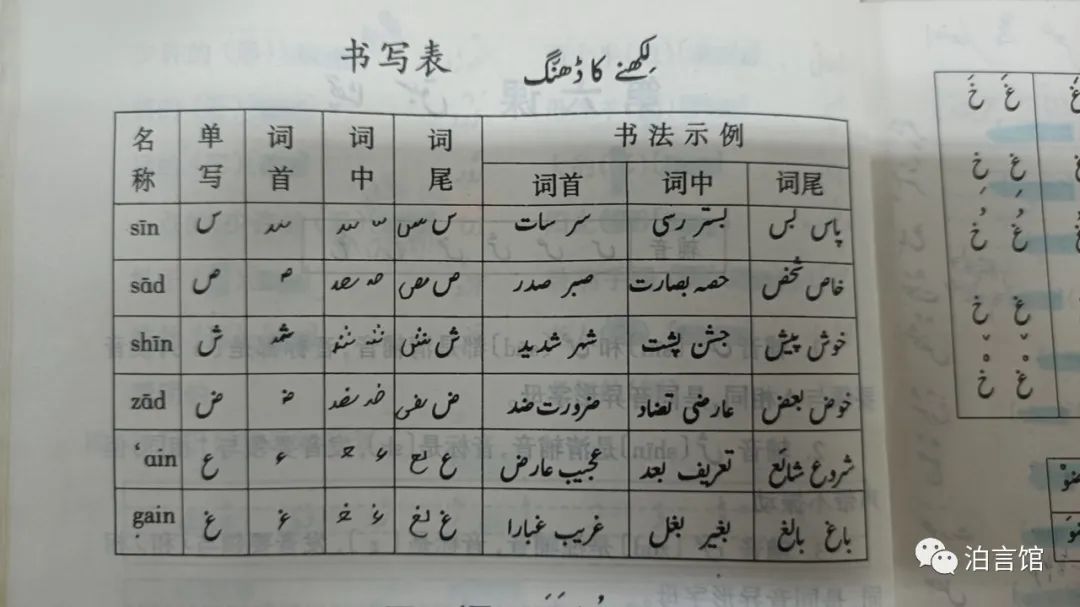 书写表 لِکھنے کا ڈھنگ
名称 单写 词首 词中 词尾 书法示例
词首 词中 词尾
sīn س سـ ـسـ ـس س سر سات بستر رسی پاس بس
sād ص صـ ـصـ ـص ص صبر صدر حصہ بصارت خاص شخص
shīn ش شـ ـشـ ـش ش شہر شدید جشن پشت خوش پیش
zād ض ضـ ـضـ ـض ض ضرورت ضد عارضی تضاد خوض بعض
‘ain ع عـ ـعـ ـع ع عجیب عارض تعریف بعد شروع شائع
gain غ غـ ـغـ ـغ غ غریب غبارا بغیر بغل باغ بالغ
泊言馆